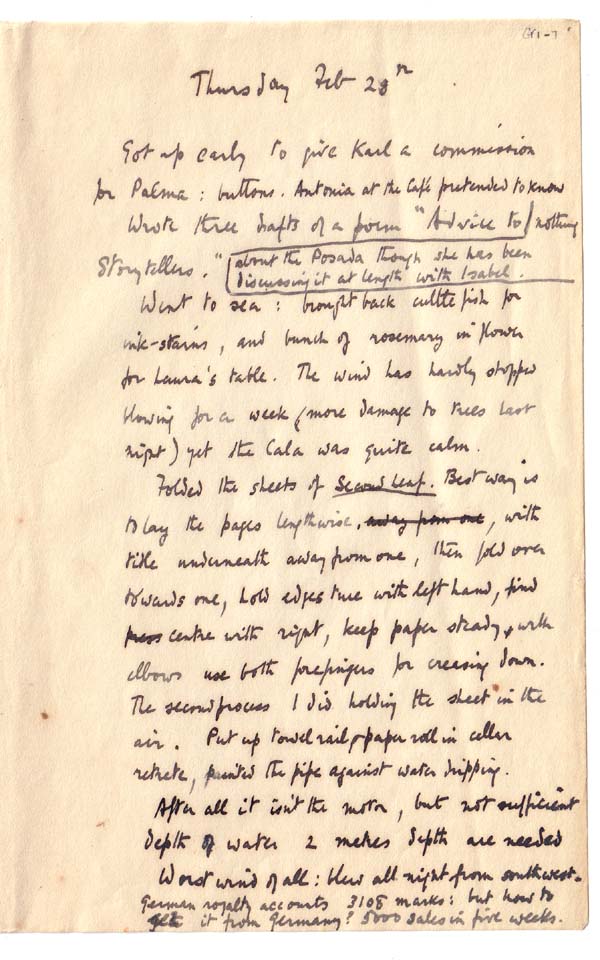 GY1-7
Thursday Feb 28th
Got up early to give Karl a commission
for Palma : buttons. Antonia at the Café pretended to know
Wrote three drafts of a poem "Advice to / nothing
Storytellers." about the Posada though she has been
discussing it at length with Isabel.
Went to sea : brought back cuttle fish for
ink-stains, and bunch of rosemary in flower
for Laura's table. The wind has hardly stopped
blowing for a week (more damage to trees last
night) yet the Cala was quite calm.
Folded the sheets of Second Leaf. Best way is
to lay the pages lengthwise, away from one, with
title underneath away from one, then fold over
towards one, hold edges true with left hand, find
press centre with right, keep paper steady & with
elbows use both forefingers for creasing down.
The second process I did holding the sheet in the
air. Put up towel rail & paper roll in cellar
retrete, painted the pipe against water dripping.
After all it isn't the motor, but not sufficient
depth of water 2 metres depth are needed
Worst wind of all : blew all night from southwest.
German royalty accounts 3108 marks : but how to
get it from Germany? 5000 sales in five weeks.